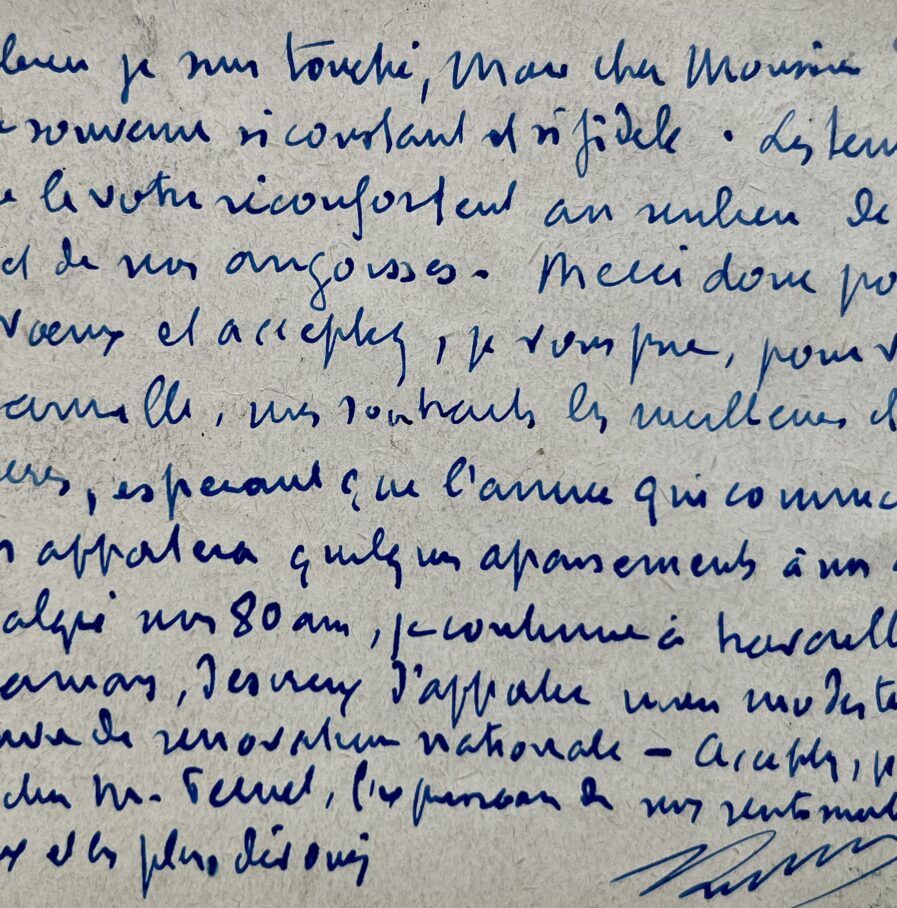 je suis touché, Mon cher Monsieur
souvenir si constant et si fidèle. Les tem
le votre réconfortent au milieu de
et de nos angoisses. Merci donc po
voeux et acceptez, je vous prie, pour v
famille, mes souhaits les meilleurs et
ères, espérant que l'année qui commenc
apportera quelques apaisements à nos
algré mes 80 ans, je continue à travaill
amais, desireux d'apporter mon modeste
uvre de renovation nationale - Acceptez, je
cher M. l'expression de mes sentiments
x et les plus dévoués